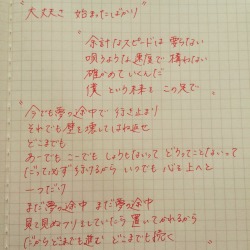 "大丈夫さ 始まったばかり"
"余計なスピードは 要らない
唄うような速度で 構わない
確かめていくんだ
僕 という未来を この足で"
"今でも夢の途中で 行き止まり
それでも壁を壊してはね返せ
どこまでも
あーでも こーでも しょうもないって どうってことないって
だって必ず行けるから いつでも 心を上へと
一つだけ
まだ夢の途中 まだ夢の途中
見て見ぬフリをしていたら 置いてかれるから
だからどこまでも進む どこまでも続く"